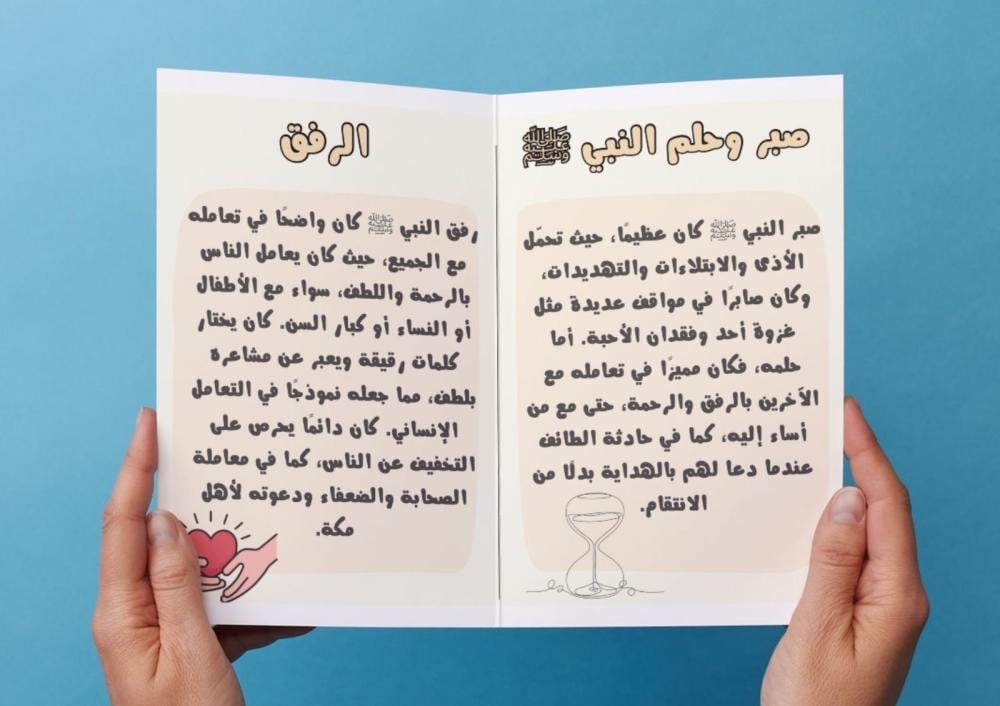 صبر وحلم النبي ﷺ
صبر النبي ﷺ كان عظيمًا، حيث تحمّل
الأذى والابتلاءات والتهديدات،
وكان صابرًا في مواقف عديدة مثل
غزوة أحد وفقدان الأحبة. أما
حلمه، فكان مميزًا في تعامله مع
الآخرين بالرفق والرحمة، حتى مع من
أساء إليه، كما في حادثة الطائف
عندما دعا لهم بالهداية بدلًا من
الانتقام.
الرفق
رفق النبي ﷺ كان واضحًا في تعامله
مع الجميع، حيث كان يعامل الناس
بالرحمة واللطف، سواء مع الأطفال
أو النساء أو كبار السن. كان يختار
كلمات رقيقة ويعبر عن مشاعره
بلطف، مما جعله نموذجًا في التعامل
الإنساني. كان دائمًا يحرص على
التخفيف عن الناس، كما في معاملة
الصحابة والضعفاء ودعوته لأهل
مكة.